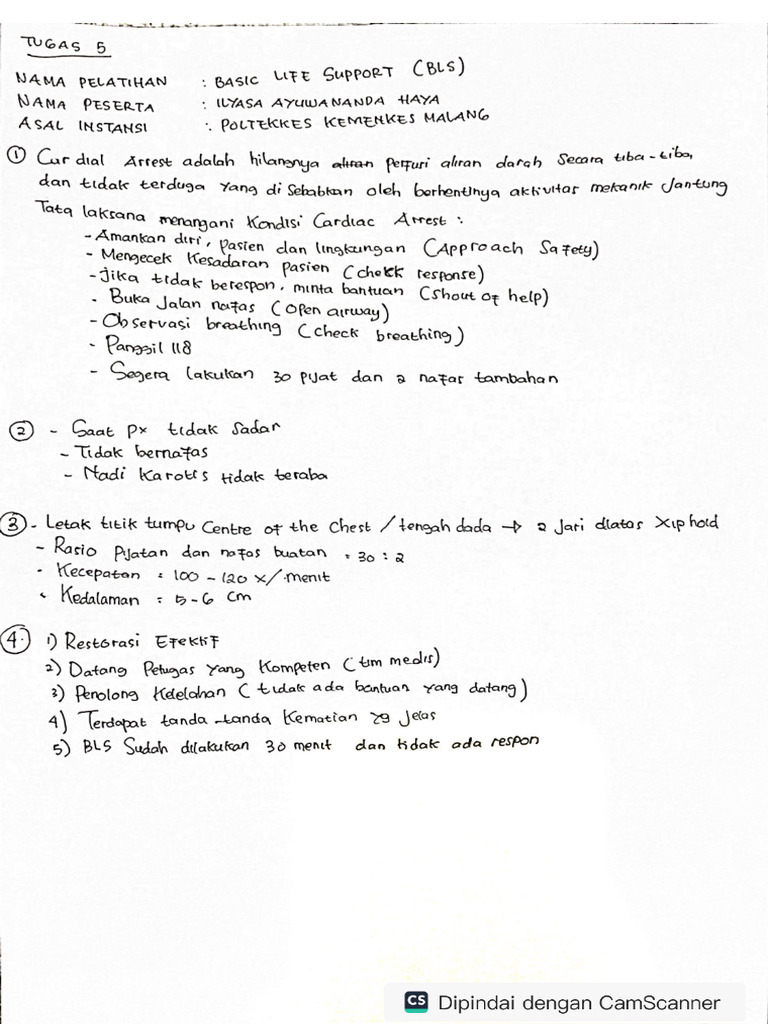 TUGAS 5
NAMA PELATIHAN : BASIC LIFE SUPPORT (BLS)
NAMA PESERTA : ILYASA AYUWANANDA HAYA
ASAL INSTANSI : POLTEKKES KEMENKES MALANG
① Cardial Arrest adalah hilangnya aliran perfusi aliran darah secara tiba-tiba,
dan tidak terduga yang disebabkan oleh berhentinya aktivitas mekanik Jantung
Tata laksana menangani Kondisi Cardiac Arrest :
- Amankan diri, pasien dan lingkungan (Approach Safety)
- Mengecek Kesadaran pasien (check response)
- Jika tidak berespon, minta bantuan (Shout of help)
- Buka Jalan nafas (open airway)
- Observasi breathing (check breathing)
- Panggil 118
- Segera lakukan 30 pijat dan 2 nafas tambahan
② - Saat px tidak sadar
- Tidak bernafas
- Nadi Karotis tidak teraba
③ - Letak titik tumpu Centre of the Chest / tengah dada → 2 Jari diatas Xiphoid
- Rasio Pijatan dan nafas buatan = 30 : 2
- Kecepatan = 100 - 120 x/menit
- Kedalaman = 5-6 cm
④. 1) Restorasi Efektif
2) Datang Petugas yang Kompeten (tim medis)
3) Penolong Kelelahan (tidak ada bantuan yang datang)
4) Terdapat tanda-tanda Kematian yg Jelas
5) BLS Sudah dilakukan 30 menit dan tidak ada respon
CS Dipindai dengan CamScanner